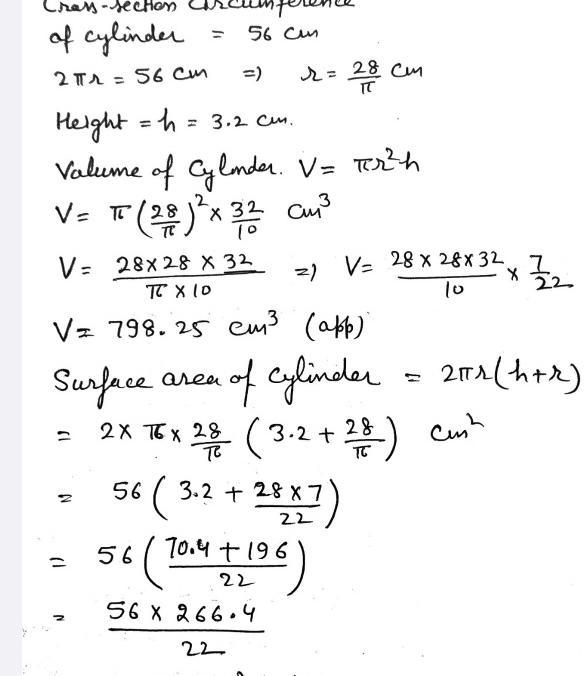 Cross-section Circumference
of cylinder = 56 cm
2πr = 56 cm => r = 28/π cm
Height = h = 3.2 cm.
Volume of Cylinder. V = πr²h
V = π(28/π)² × 32/10 cm³
V = 28×28×32/π×10 => V = 28×28×32/10 × 7/22
V = 798.25 cm³ (app)
Surface area of cylinder = 2πr(h+r)
= 2×π×28/π (3.2 + 28/π) cm²
= 56 (3.2 + 28×7/22)
= 56 (70.4 + 196/22)
= 56 × 266.4/22